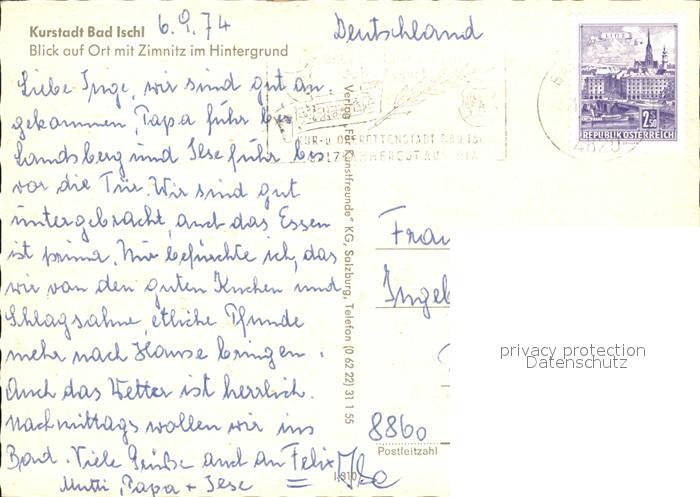 Kurstadt Bad Ischl 6.9.74 Deutschland
Blick auf Ort mit Zimnitz im Hintergrund
Liebe Inge, wir sind gut an-
gekommen, Papa fuhr bis
Landsberg und Ilse fuhr bis
vor die Tür. Wir sind gut
untergebracht, auch das Essen
ist prima. Nur befürchte ich, das
wir von den guten Kuchen und
Schlagsahne, etliche Pfunde
mehr nach Hause bringen.
Auch das Wetter ist herrlich.
Nachmittags wollen wir ins
Bad. Viele Grüße auch an Felix
Mutti, Papa + Ilse
Verlag "Für Kunstfreunde" KG, Salzburg, Telefon (0 62 22) 31 1 55
KUR- u. OPERETTENSTADT BAD IS
4820
LINZ
2.50
REPUBLIK ÖSTERREICH
Frau
Ingeb
8860
Postleitzahl
privacy protection
Datenschutz